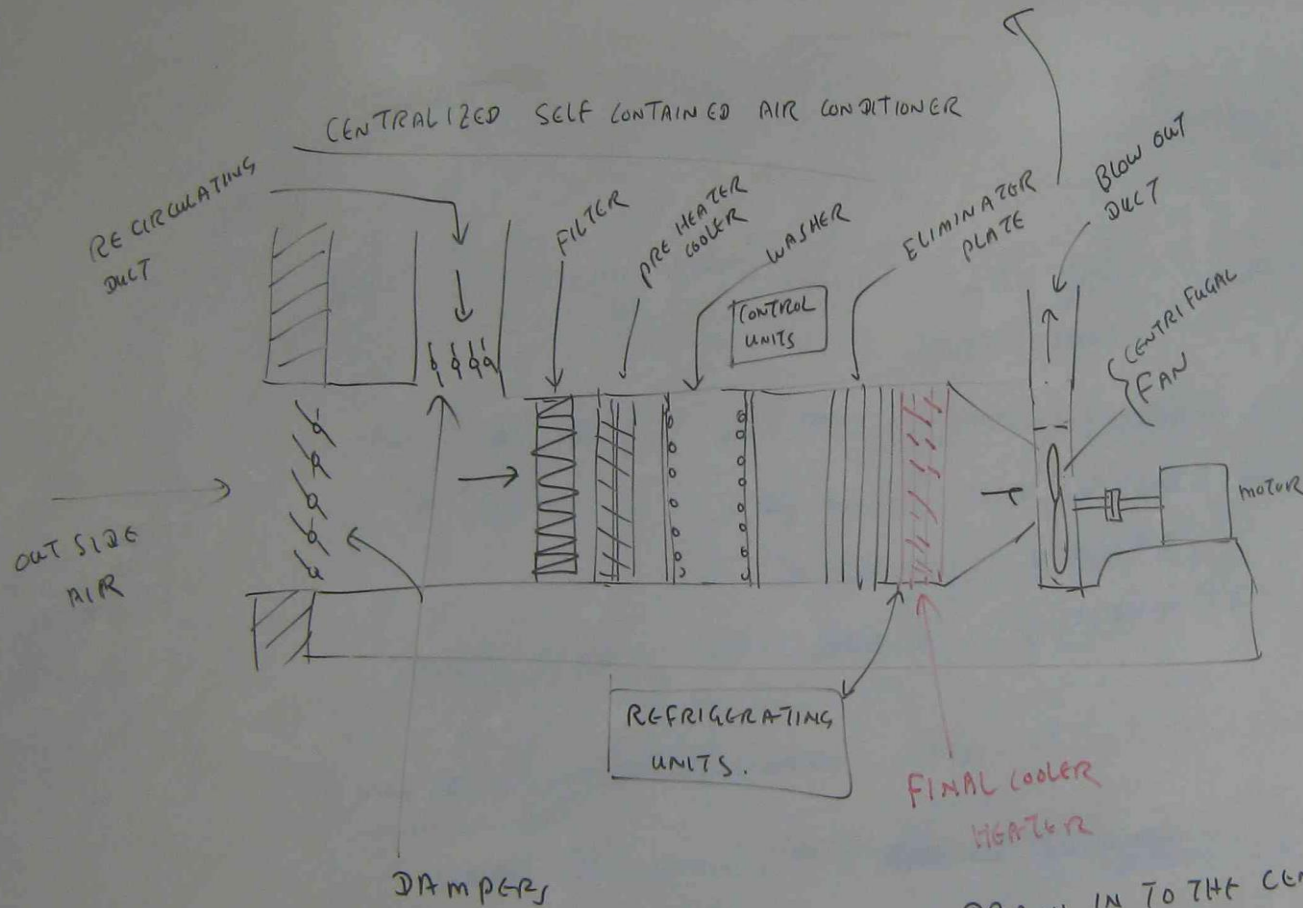 CENTRALIZED SELF CONTAINED AIR CONDITIONER
RE CIRCULATING
DUCT
FILTER
PRE HEATER
COOLER
WASHER
CONTROL
UNITS
ELIMINATER
PLATE
BLOW OUT
DUCT
CENTRIFUGAL
FAN
MOTOR
OUT SIDE
AIR
REFRIGERATING
UNITS.
FINAL COOLER
HEATER
DAMPERS
IN TO THE CEN